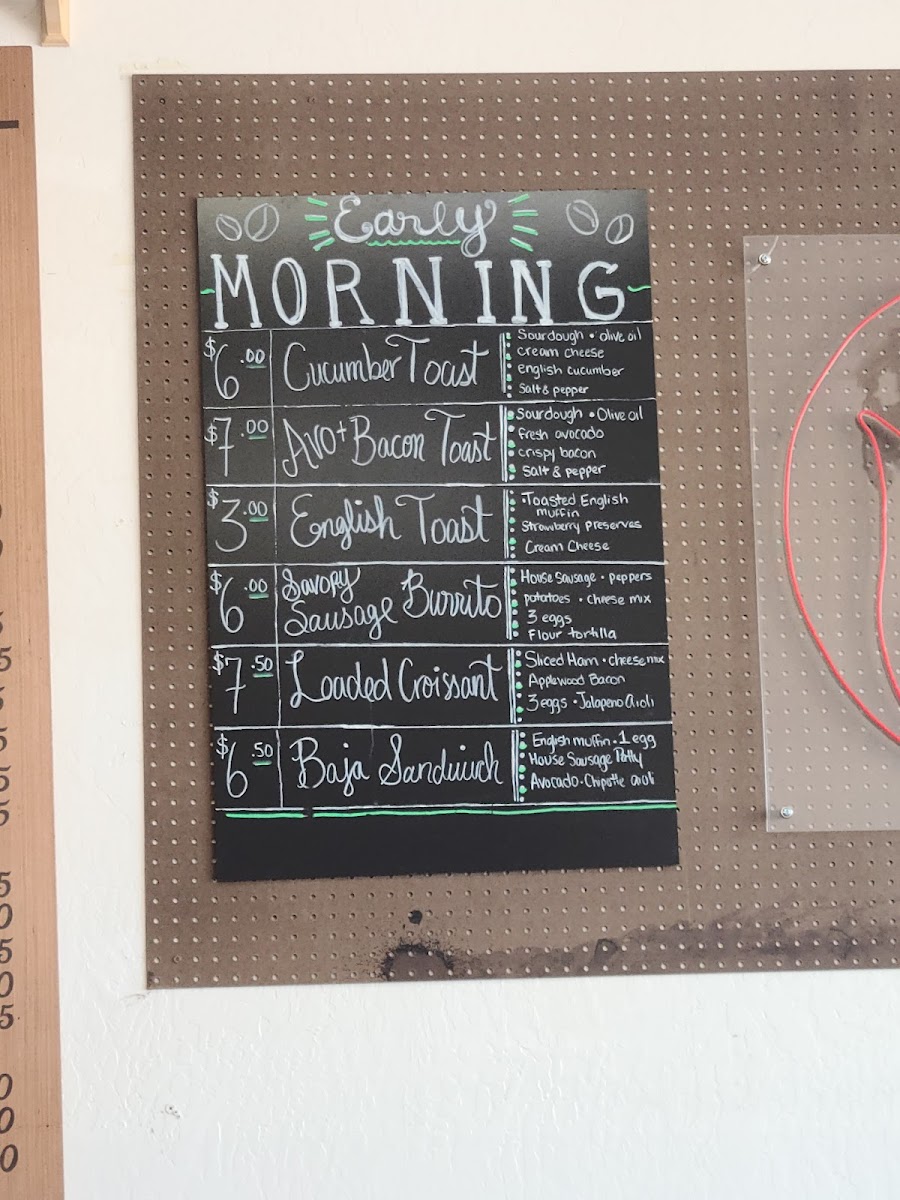 Early
MORNING
$6.00 Cucumber Toast
Sourdough • olive oil
cream cheese
english cucumber
Salt & pepper
$7.00 Avo + Bacon Toast
Sourdough • Olive oil
fresh avocado
crispy bacon
Salt & pepper
$3.00 English Toast
• Toasted English
muffin
Strawberry preserves
Cream Cheese
$6.00 Savory
Sausage Burrito
House Sausage • peppers
potatoes • cheese mix
3 eggs
Flour tortilla
$7.50 Loaded Croissant
Sliced Ham • cheese mix
Applewood Bacon
3 eggs • Jalapeno aioli
$6.50 Baja Sandwich
English muffin • 1 egg
House Sausage Patty
Avocado • Chipotle aioli
5
5
5
0
5
0
5
0
0
0